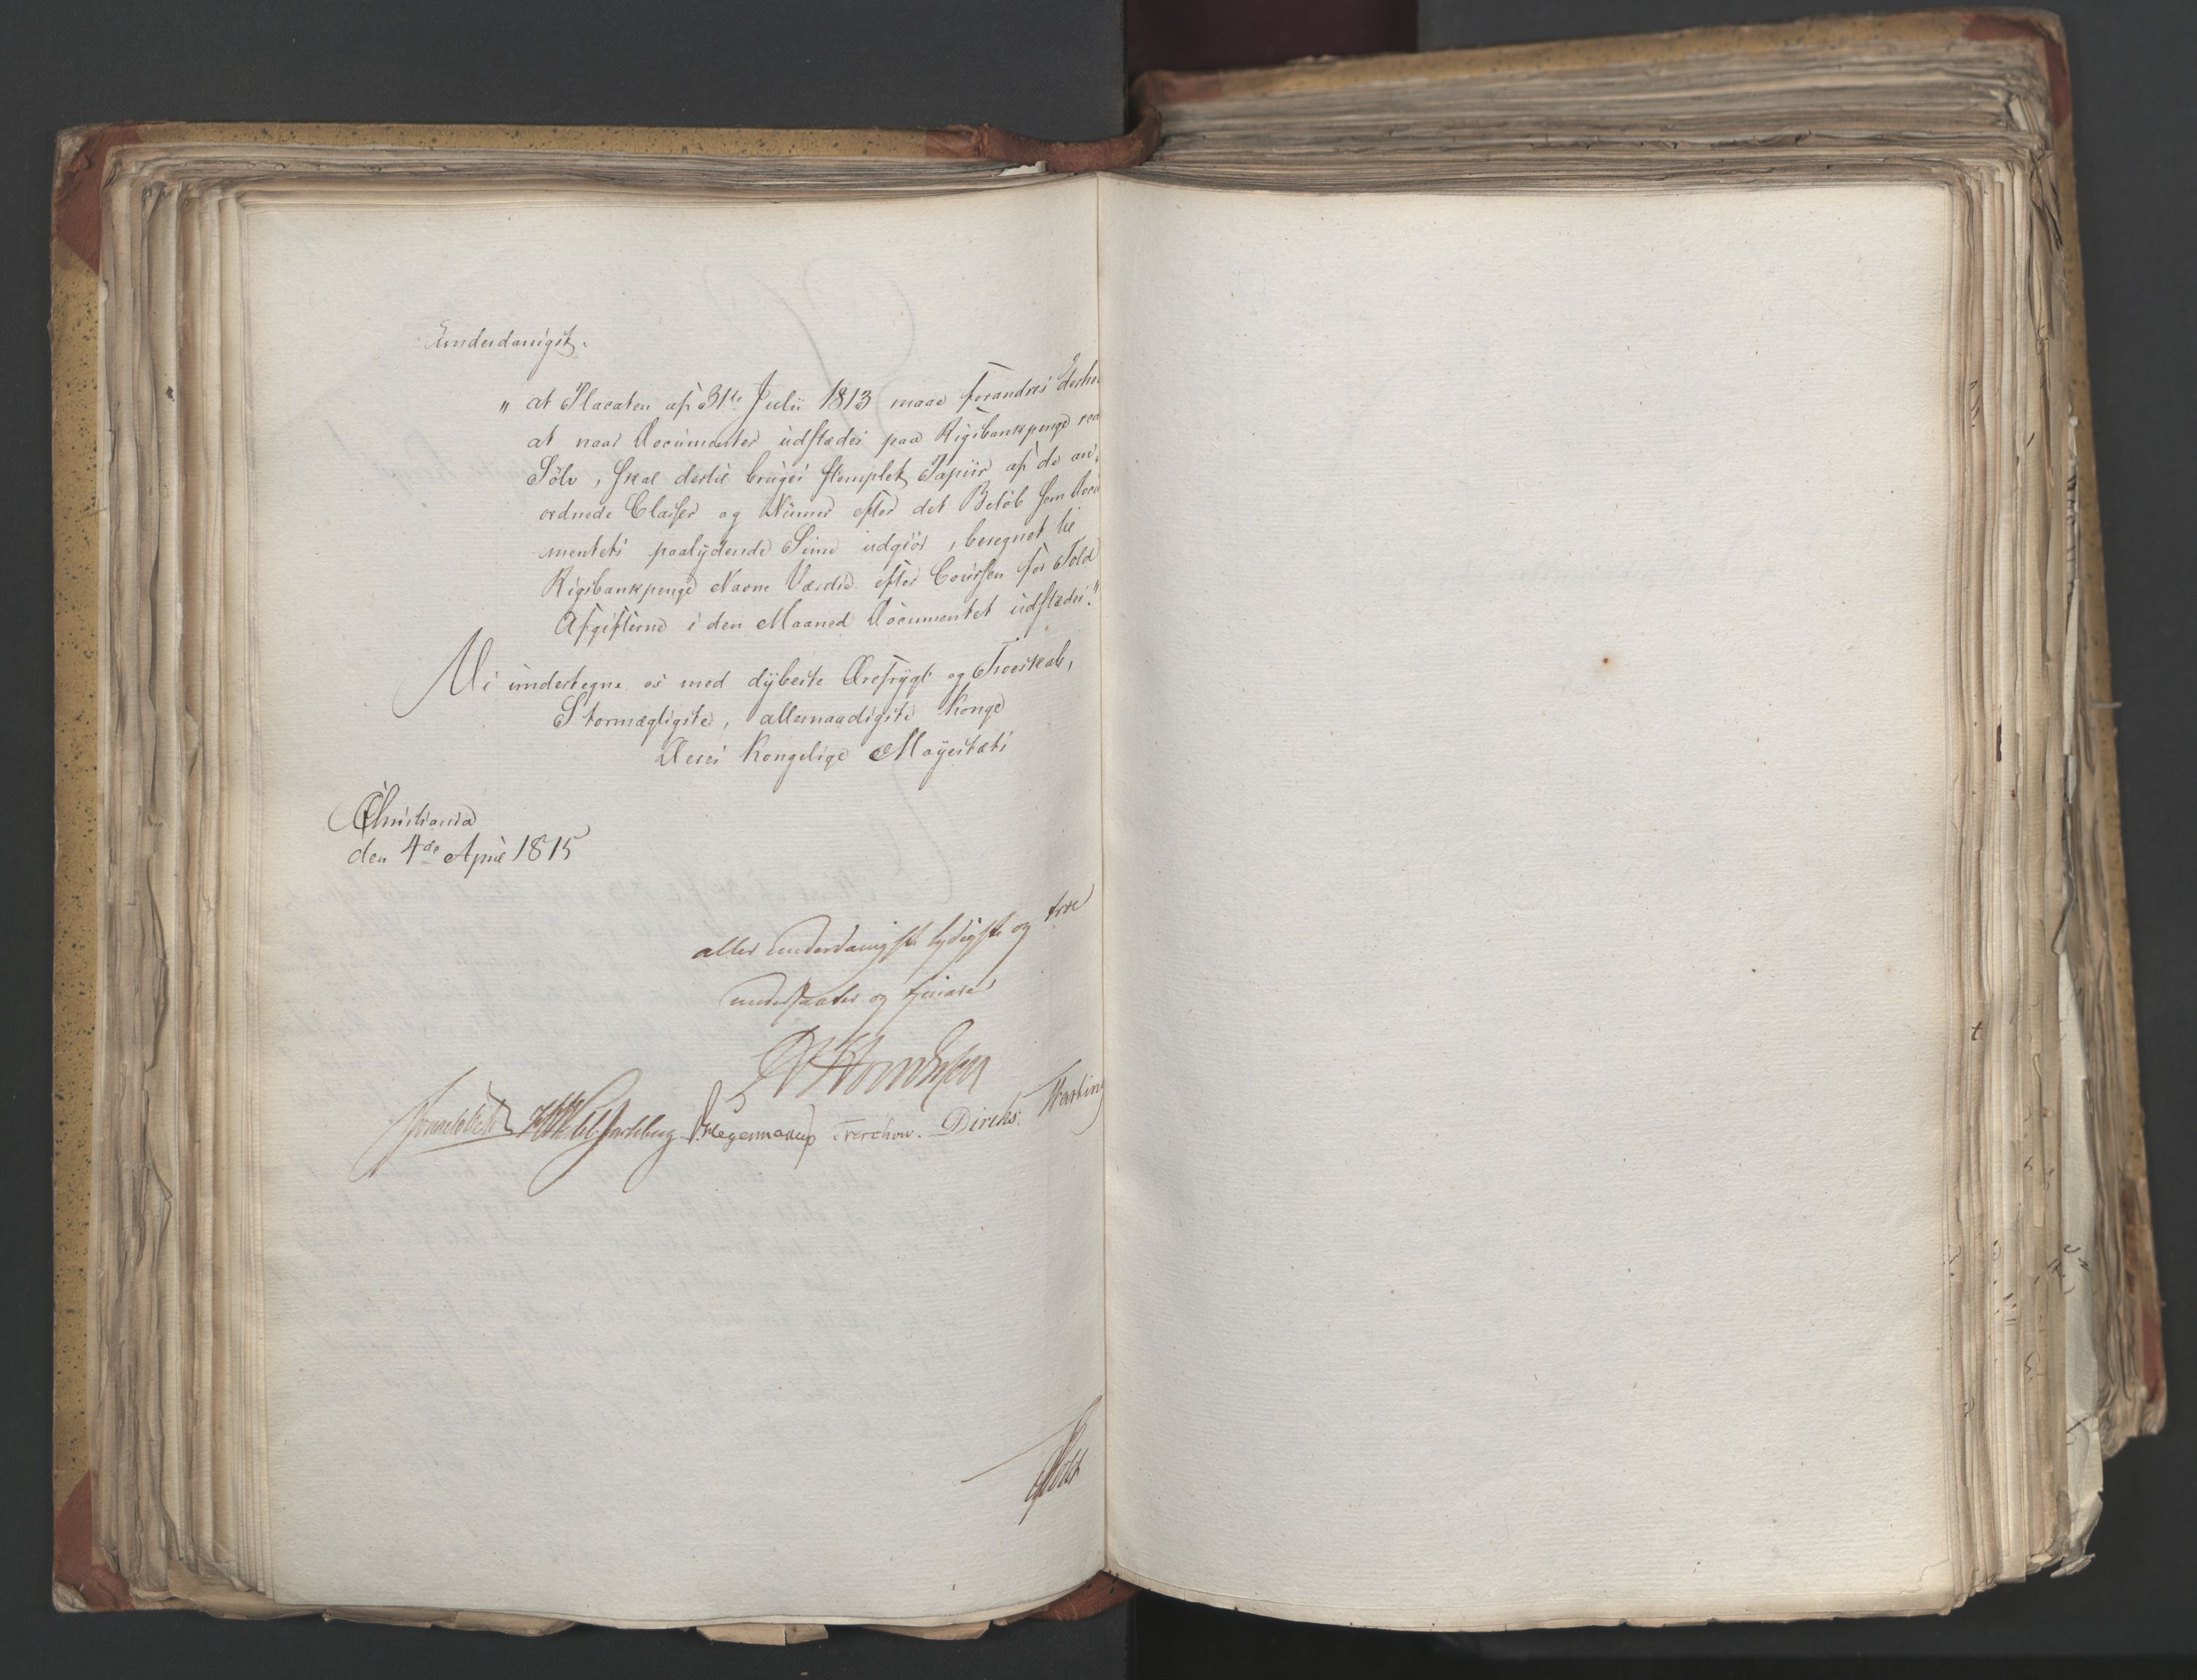 underdanigst.
„ at Placaten af 31te Julii 1813 maae forandres derhe
at naar Documenter udstædes paa Rigsbankpenge red
Sölv, skal dertil bruges stemplet Papiir af de an-
ordnede Classer og Numer efter det Belöb som Docu
mentets paalydende Sum udgiör, beregnet til
Rigsbankpenge Navne Værdie efter Coursen for Told
Afgifterne i den Maaned Documentet udstædes."
Vi undertegne os med dybeste Ærefrygt og Troeskab,
Stormægtigste, allernaadigste Konge
Deres Kongelige Mayestæts
Christiania
den 4de April 1815
aller underdanigste lydigste og troe
undersaatter og tjenere
Sommerhielm Hegermann Treschow. Diriks.
Holst